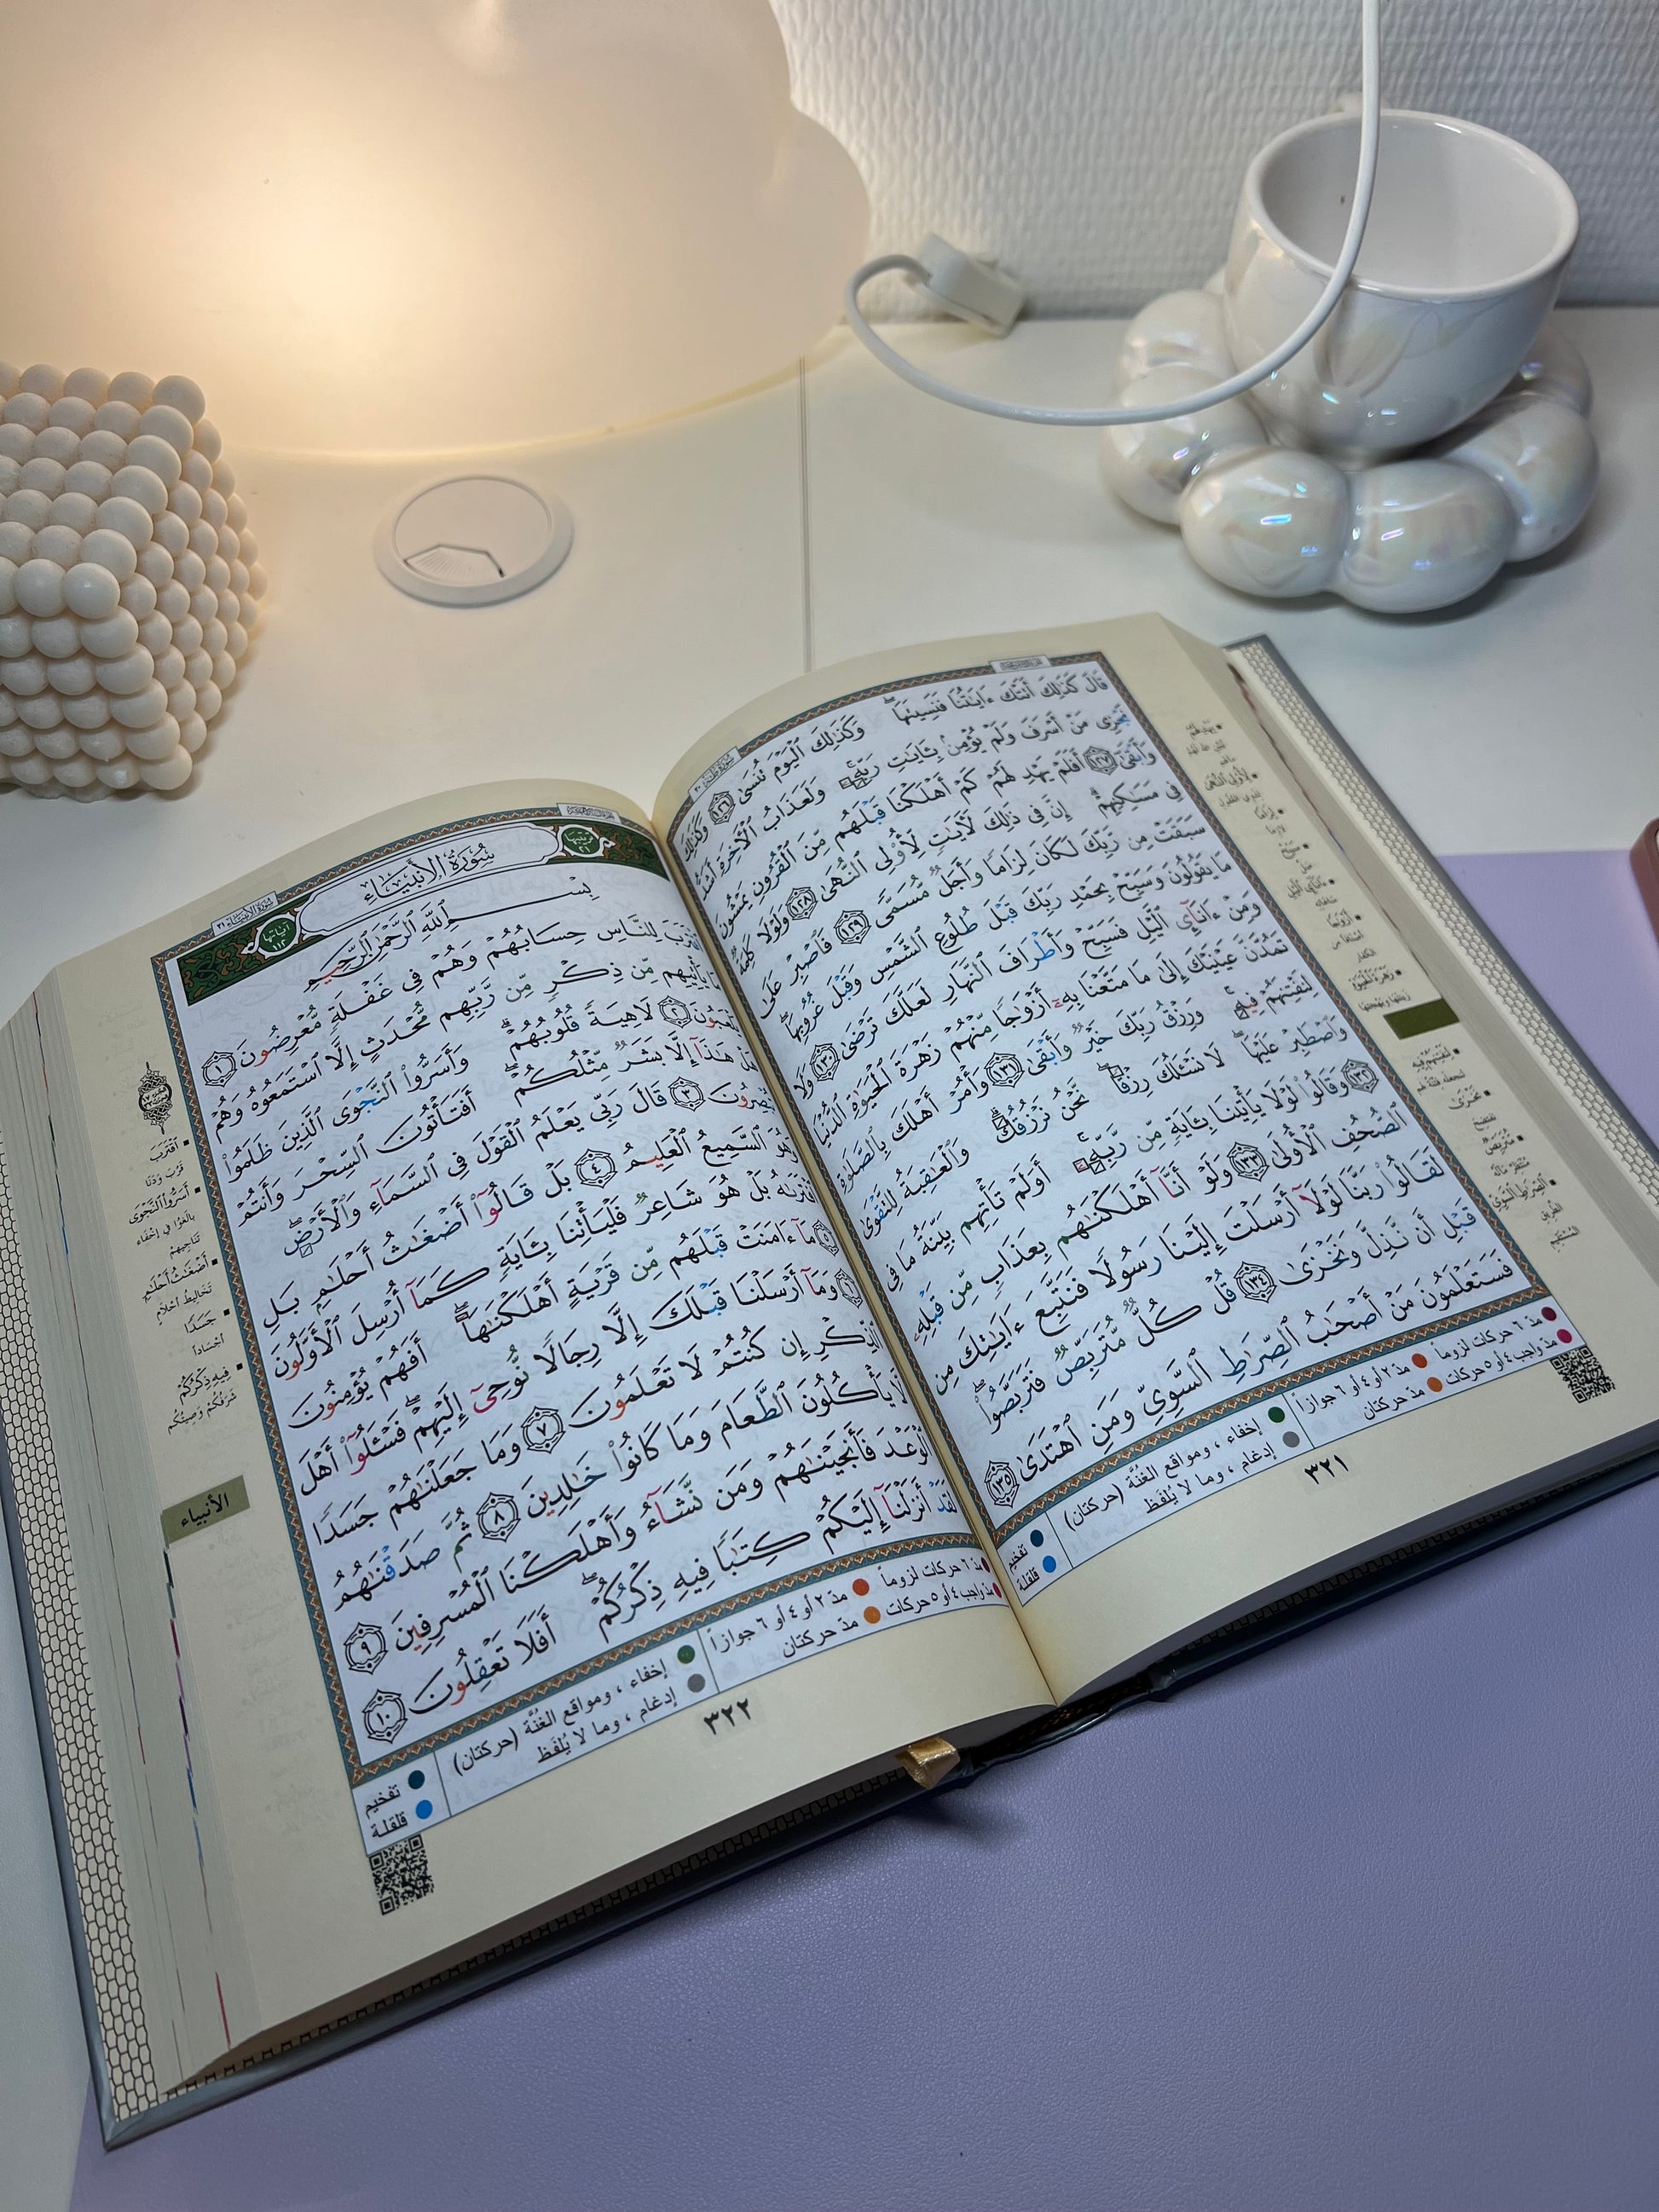 قَالَ كَذَٰلِكَ أَتَتْكَ ءَايَٰتُنَا فَنَسِيتَهَا ۖ وَكَذَٰلِكَ ٱلْيَوْمَ تُنسَىٰ ١٢٦ وَكَذَٰلِكَ
نَجْزِى مَنْ أَسْرَفَ وَلَمْ يُؤْمِنۢ بِـَٔايَٰتِ رَبِّهِۦ ۚ وَلَعَذَابُ ٱلْءَاخِرَةِ أَشَدُّ
وَأَبْقَىٰٓ ١٢٧ أَفَلَمْ يَهْدِ لَهُمْ كَمْ أَهْلَكْنَا قَبْلَهُم مِّنَ ٱلْقُرُونِ يَمْشُونَ
فِى مَسَٰكِنِهِمْ ۗ إِنَّ فِى ذَٰلِكَ لَءَايَٰتٍ لِّأُو۟لِى ٱلنُّهَىٰ ١٢٨ وَلَوْلَا كَلِمَةٌ
سَبَقَتْ مِن رَّبِّكَ لَكَانَ لِزَامًا وَأَجَلٌ مُّسَمًّى ١٢٩ فَٱصْبِرْ عَلَىٰ
مَا يَقُولُونَ وَسَبِّحْ بِحَمْدِ رَبِّكَ قَبْلَ طُلُوعِ ٱلشَّمْسِ وَقَبْلَ غُرُوبِهَا ۖ
وَمِنْ ءَانَآئِ ٱلَّيْلِ فَسَبِّحْ وَأَطْرَافَ ٱلنَّهَارِ لَعَلَّكَ تَرْضَىٰ ١٣٠ وَلَا
تَمُدَّنَّ عَيْنَيْكَ إِلَىٰ مَا مَتَّعْنَا بِهِۦٓ أَزْوَٰجًا مِّنْهُمْ زَهْرَةَ ٱلْحَيَوٰةِ ٱلدُّنْيَا
لِنَفْتِنَهُمْ فِيهِ ۚ وَرِزْقُ رَبِّكَ خَيْرٌ وَأَبْقَىٰ ١٣١ وَأْمُرْ أَهْلَكَ بِٱلصَّلَوٰةِ
وَٱصْطَبِرْ عَلَيْهَا ۖ لَا نَسْـَٔلُكَ رِزْقًا ۖ نَّحْنُ نَرْزُقُكَ ۗ وَٱلْعَٰقِبَةُ لِلتَّقْوَىٰ
١٣٢ وَقَالُوا۟ لَوْلَا يَأْتِينَا بِـَٔايَةٍ مِّن رَّبِّهِۦٓ ۚ أَوَلَمْ تَأْتِهِم بَيِّنَةُ مَا فِى
ٱلصُّحُفِ ٱلْأُولَىٰ ١٣٣ وَلَوْ أَنَّآ أَهْلَكْنَٰهُم بِعَذَابٍ مِّن قَبْلِهِۦ
لَقَالُوا۟ رَبَّنَا لَوْلَآ أَرْسَلْتَ إِلَيْنَا رَسُولًا فَنَتَّبِعَ ءَايَٰتِكَ مِن
قَبْلِ أَن نَّذِلَّ وَنَخْزَىٰ ١٣٤ قُلْ كُلٌّ مُّتَرَبِّصٌ فَتَرَبَّصُوا۟ ۖ
فَسَتَعْلَمُونَ مَنْ أَصْحَٰبُ ٱلصِّرَٰطِ ٱلسَّوِىِّ وَمَنِ ٱهْتَدَىٰ ١٣٥
مدّ ٦ حركات لزوماً مدّ ٢ أو ٤ أو ٦ جوازاً إخفاء ، ومواقع الغنّة (حركتان) تفخيم
مدّ واجب ٤ أو ٥ حركات مدّ حركتان إدغام ، وما لا يُلفظ قلقلة
٣٢١
سُورَةُ الأَنبِيَاء ٢١
ترتيبها ٢١
سُورَةُ الأَنبِيَاءِ
آياتها ١١٢
بِسْمِ ٱللَّهِ ٱلرَّحْمَٰنِ ٱلرَّحِيمِ
ٱقْتَرَبَ لِلنَّاسِ حِسَابُهُمْ وَهُمْ فِى غَفْلَةٍ مُّعْرِضُونَ ١
مَا يَأْتِيهِم مِّن ذِكْرٍ مِّن رَّبِّهِم مُّحْدَثٍ إِلَّا ٱسْتَمَعُوهُ وَهُمْ
يَلْعَبُونَ ٢ لَاهِيَةً قُلُوبُهُمْ ۗ وَأَسَرُّوا۟ ٱلنَّجْوَى ٱلَّذِينَ ظَلَمُوا۟
هَلْ هَٰذَآ إِلَّا بَشَرٌ مِّثْلُكُمْ ۖ أَفَتَأْتُونَ ٱلسِّحْرَ وَأَنتُمْ
تُبْصِرُونَ ٣ قَالَ رَبِّى يَعْلَمُ ٱلْقَوْلَ فِى ٱلسَّمَآءِ وَٱلْأَرْضِ ۖ
وَهُوَ ٱلسَّمِيعُ ٱلْعَلِيمُ ٤ بَلْ قَالُوٓا۟ أَضْغَٰثُ أَحْلَٰمٍۭ بَلِ
ٱفْتَرَىٰهُ بَلْ هُوَ شَاعِرٌ فَلْيَأْتِنَا بِـَٔايَةٍ كَمَآ أُرْسِلَ ٱلْأَوَّلُونَ
٥ مَآ ءَامَنَتْ قَبْلَهُم مِّن قَرْيَةٍ أَهْلَكْنَٰهَآ ۖ أَفَهُمْ يُؤْمِنُونَ
٦ وَمَآ أَرْسَلْنَا قَبْلَكَ إِلَّا رِجَالًا نُّوحِىٓ إِلَيْهِمْ ۖ فَسْـَٔلُوٓا۟ أَهْلَ
ٱلذِّكْرِ إِن كُنتُمْ لَا تَعْلَمُونَ ٧ وَمَا جَعَلْنَٰهُمْ جَسَدًا
لَّا يَأْكُلُونَ ٱلطَّعَامَ وَمَا كَانُوا۟ خَٰلِدِينَ ٨ ثُمَّ صَدَقْنَٰهُمُ
ٱلْوَعْدَ فَأَنجَيْنَٰهُمْ وَمَن نَّشَآءُ وَأَهْلَكْنَا ٱلْمُسْرِفِينَ ٩
لَقَدْ أَنزَلْنَآ إِلَيْكُمْ كِتَٰبًا فِيهِ ذِكْرُكُمْ ۖ أَفَلَا تَعْقِلُونَ ١٠
مدّ ٦ حركات لزوماً مدّ ٢ أو ٤ أو ٦ جوازاً إخفاء ، ومواقع الغنّة (حركتان) تفخيم
مدّ واجب ٤ أو ٥ حركات مدّ حركتان إدغام ، وما لا يُلفظ قلقلة
٣٢٢
اقْتَرَبَ
قَرُبَ وَدَنَا
أَسَرُّوا النَّجْوَى
بالَغُوا في إخفاء
تَناجيهِمْ
أَضْغَاثُ أَحْلَامٍ
تَخاليطُ أحلامٍ
جَسَدًا
أجساداً
فِيهِ ذِكْرُكُمْ
شَرَفُكُمْ وَصِيتُكُم
الأنبياء